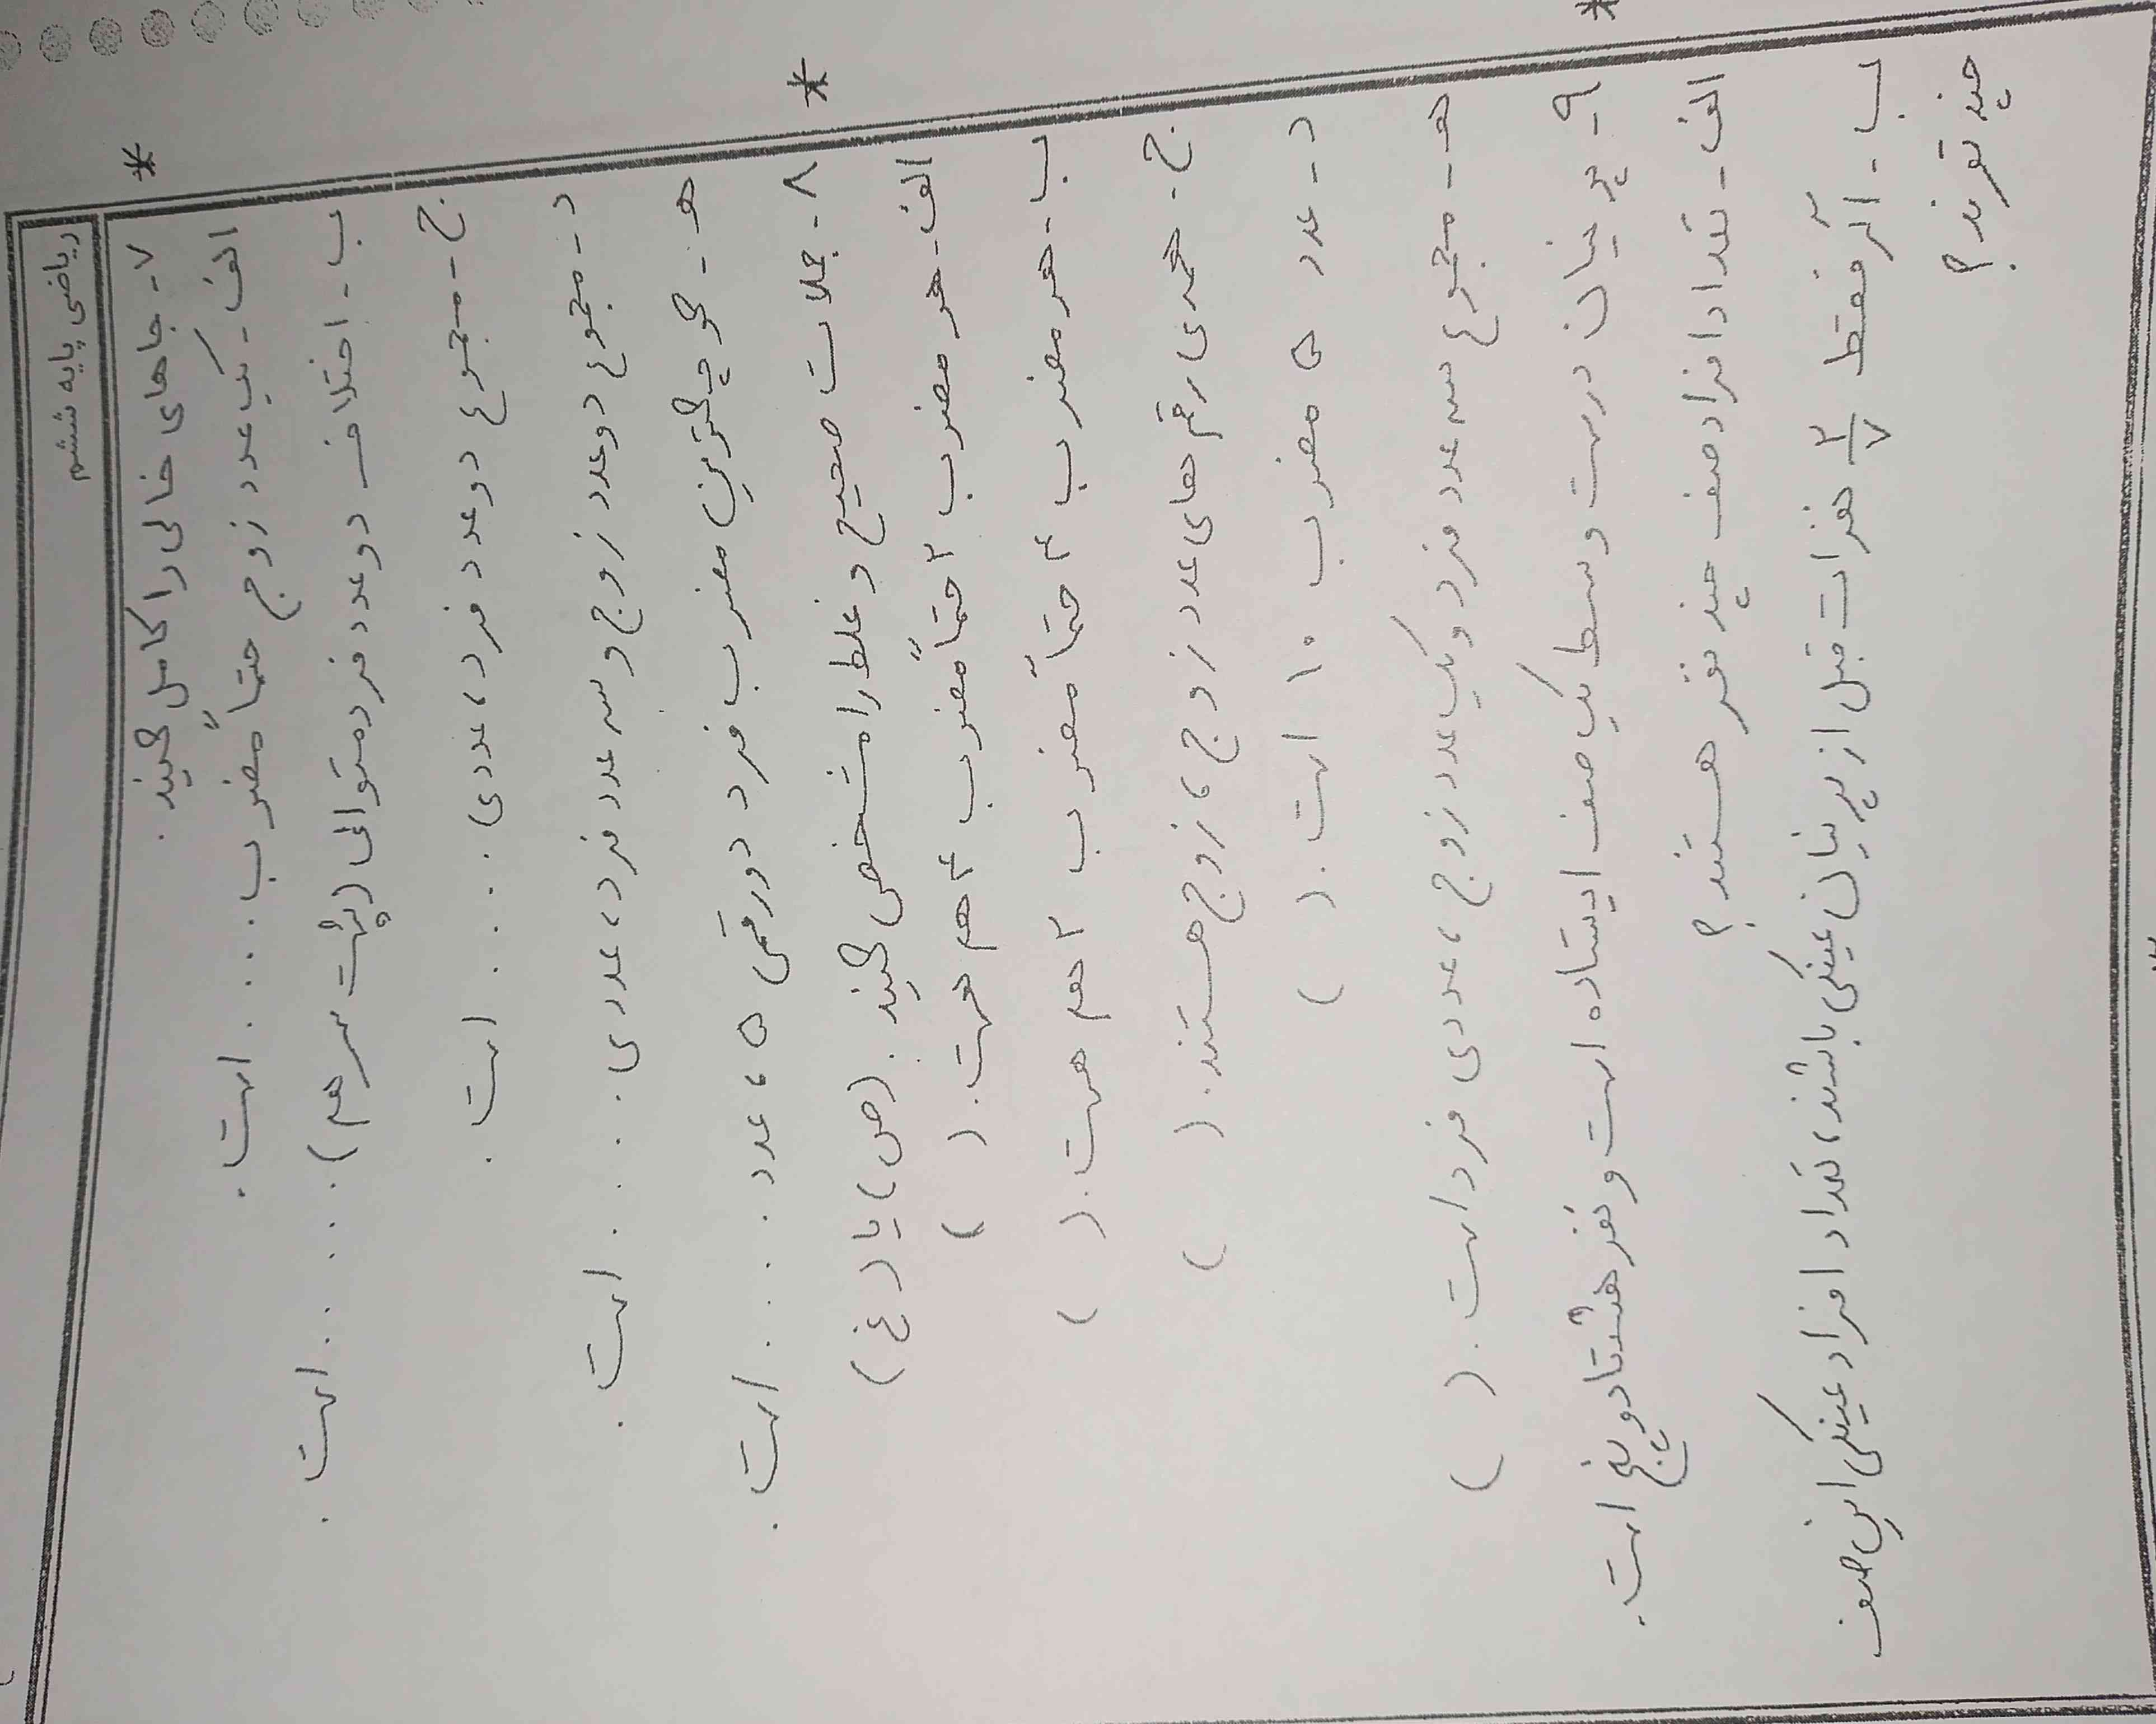 ریاضی پایه ششم
* ۷- جاهای خالی را کامل کنید.
الف- یک عدد زوج حتماً مضرب ..... است.
ب- اختلاف دو عدد فرد متوالی (پشت سر هم) ..... است.
ج- مجموع دو عدد فرد، عددی ..... است.
د- مجموع دو عدد زوج و سه عدد فرد، عددی ..... است.
هـ- کوچکترین مضرب فرد دو رقمی ۵، عدد ..... است.
* ۸- جملات صحیح و غلط را مشخص کنید. (ص) یا (غ)
الف- هر مضرب ۲ حتماً مضرب ۴ هم هست. ( )
ب- هر مضرب ۴ حتماً مضرب ۲ هم هست. ( )
ج- همه‌ی رقم های عدد زوج، زوج هستند. ( )
د- عدد ۵ مضرب ۱۰ است. ( )
هـ- مجموع سه عدد فرد و یک عدد زوج، عددی فرد است. ( )
* ۹- پرنیان درست وسط یک صف ایستاده است و نفر هشتاد و پنج است.
الف- تعداد افراد صف چند نفر هستند؟
ب- اگر فقط ۲/۷ نفرات قبل از پرنیان عینکی باشند، تعداد افراد عینکی این صف
چند نفرند؟